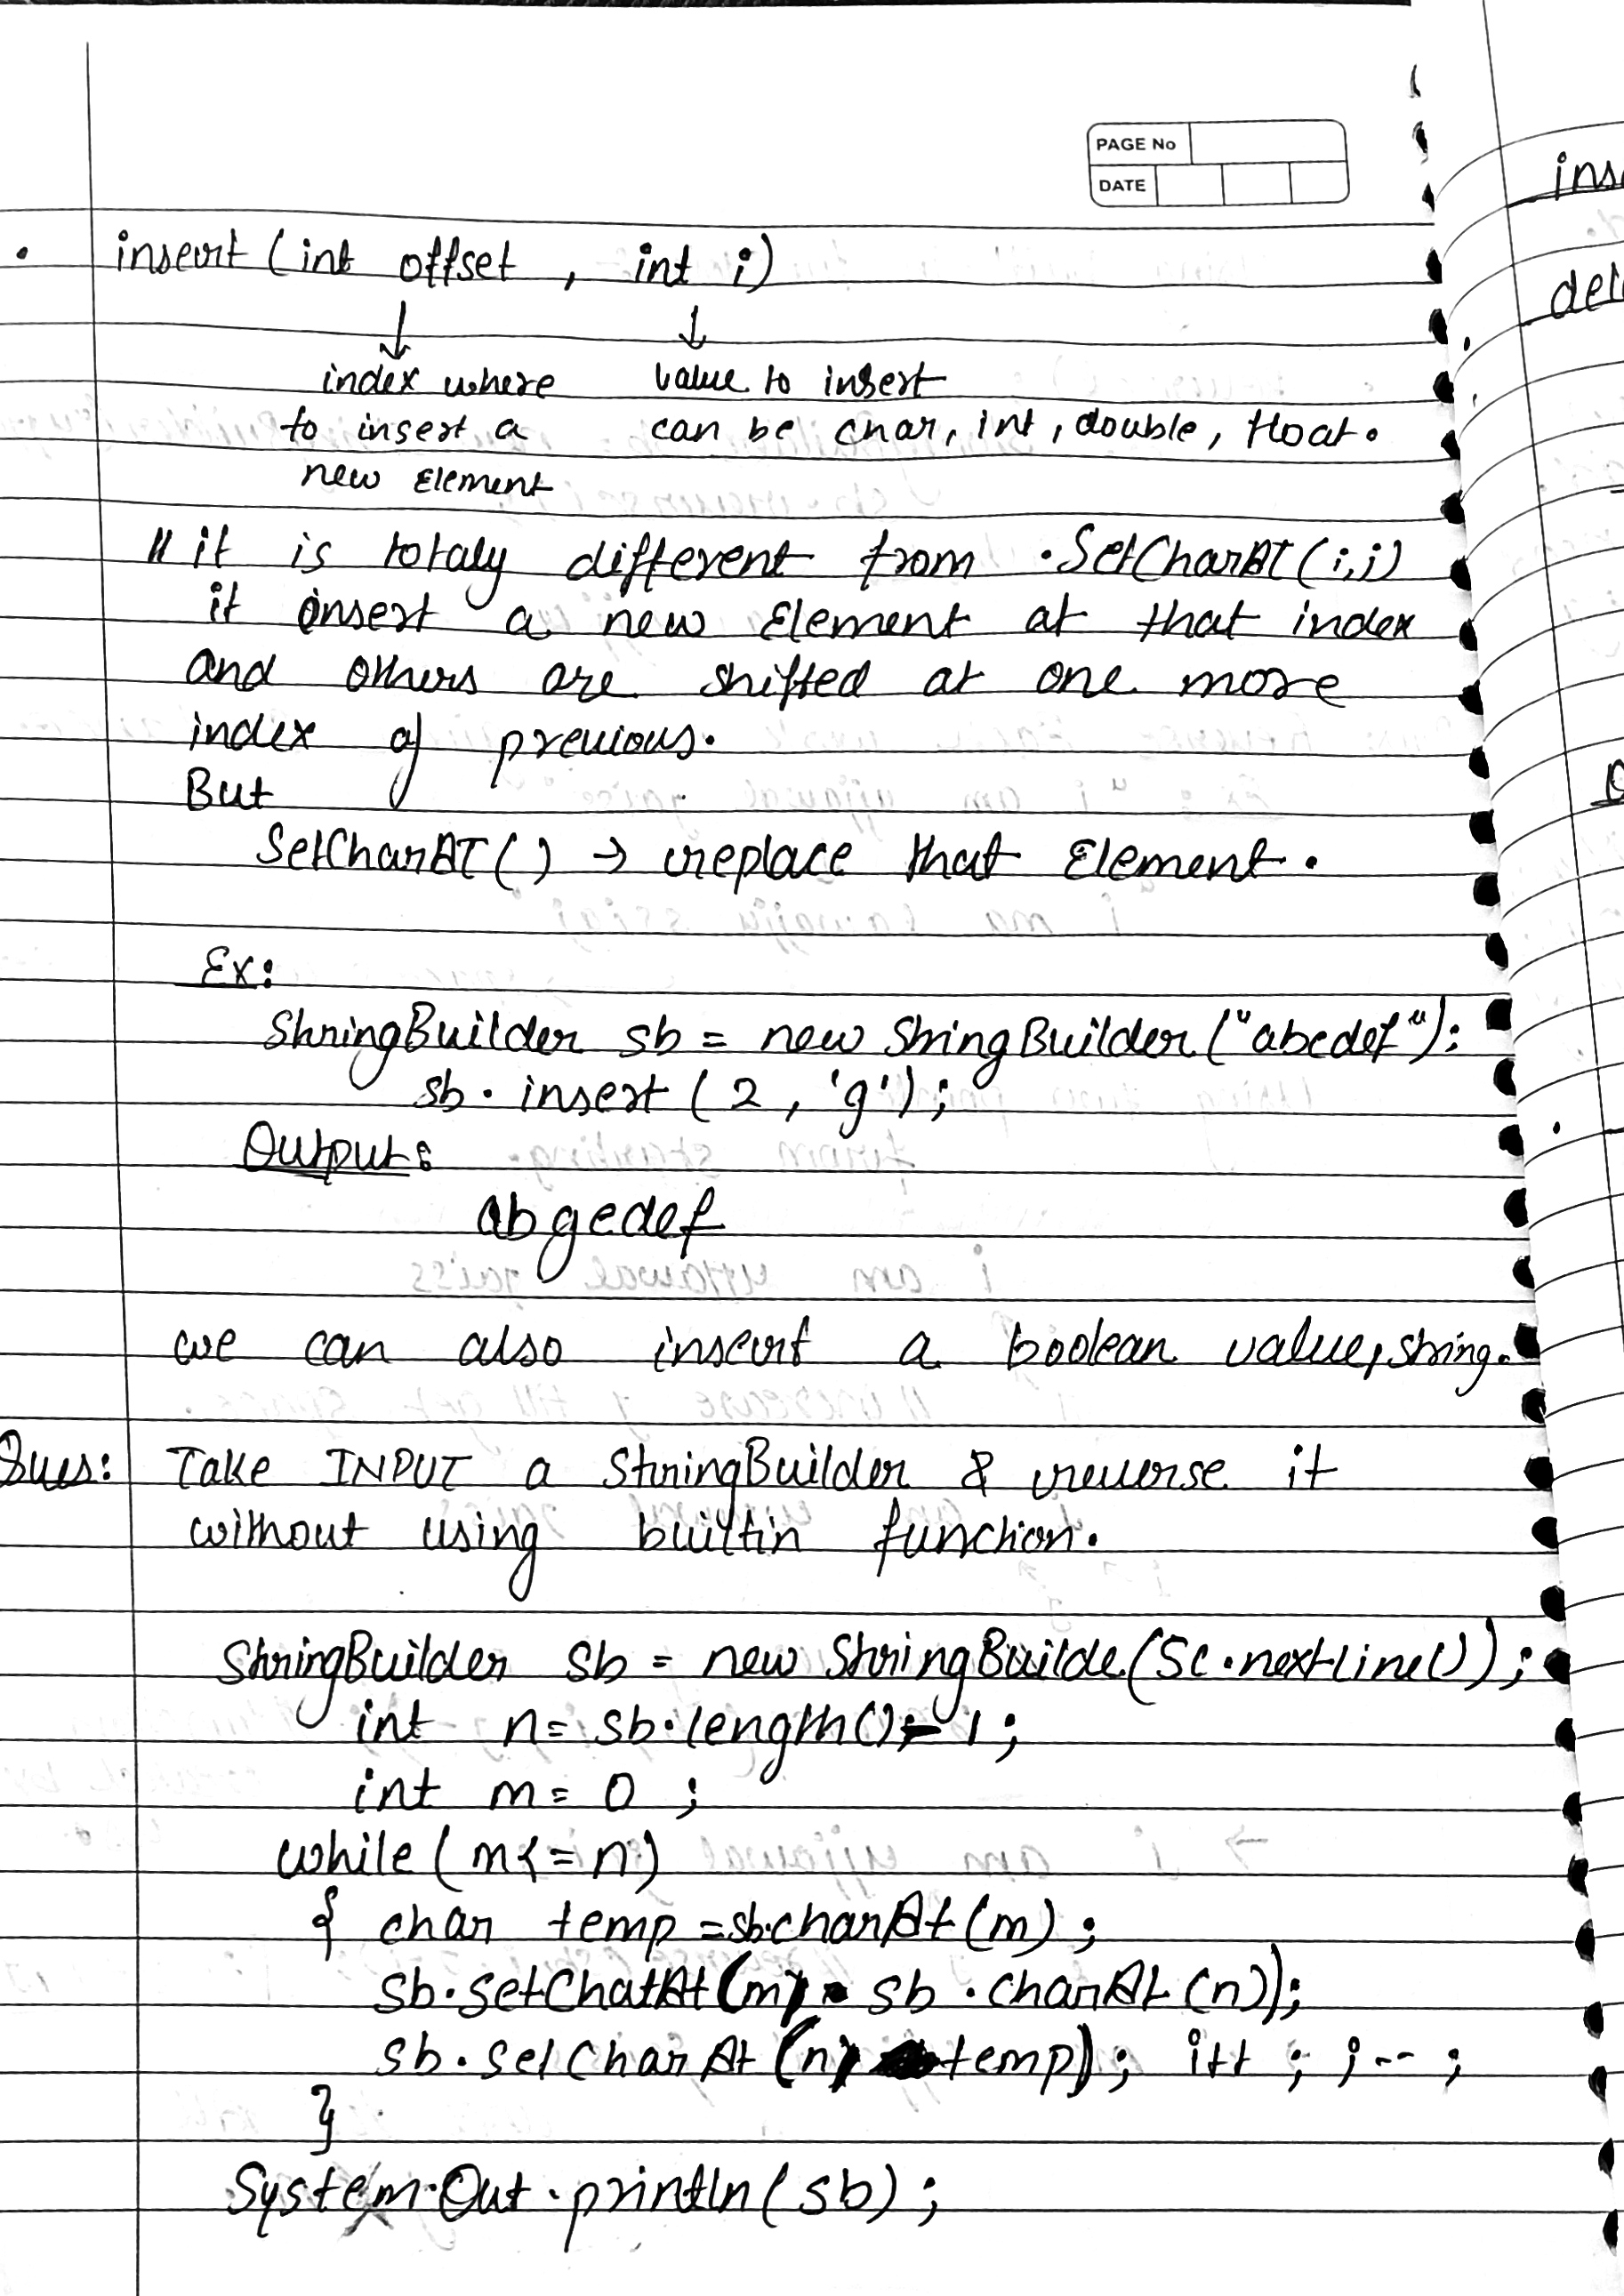 PAGE No
DATE
• insert (int offset , int i)
↓ ↓
index where value to insert
to insert a can be char, int, double, float.
new Element
// it is totaly different from .SetCharAT(i,j)
it insert a new Element at that index
and others are shifted at one more
index of previous.
But
SetCharAT() → replace that Element.
Ex:
StringBuilder sb = new StringBuilder("abcdef");
sb. insert (2, 'g');
Output:
abgcdef
we can also insert a boolean value, string.
Ques: Take INPUT a StringBuilder & reverse it
without using builtin function.
StringBuilder sb = new StringBuilde(Sc.nextLine());
int n= sb.length()-1;
int m= 0 ;
while ( m<=n)
{ char temp =sb.charAt(m);
sb.setChatAt(m, sb.charAt(n));
sb.setCharAt(n, temp); i++ ; j-- ;
}
System.Out.println(sb);